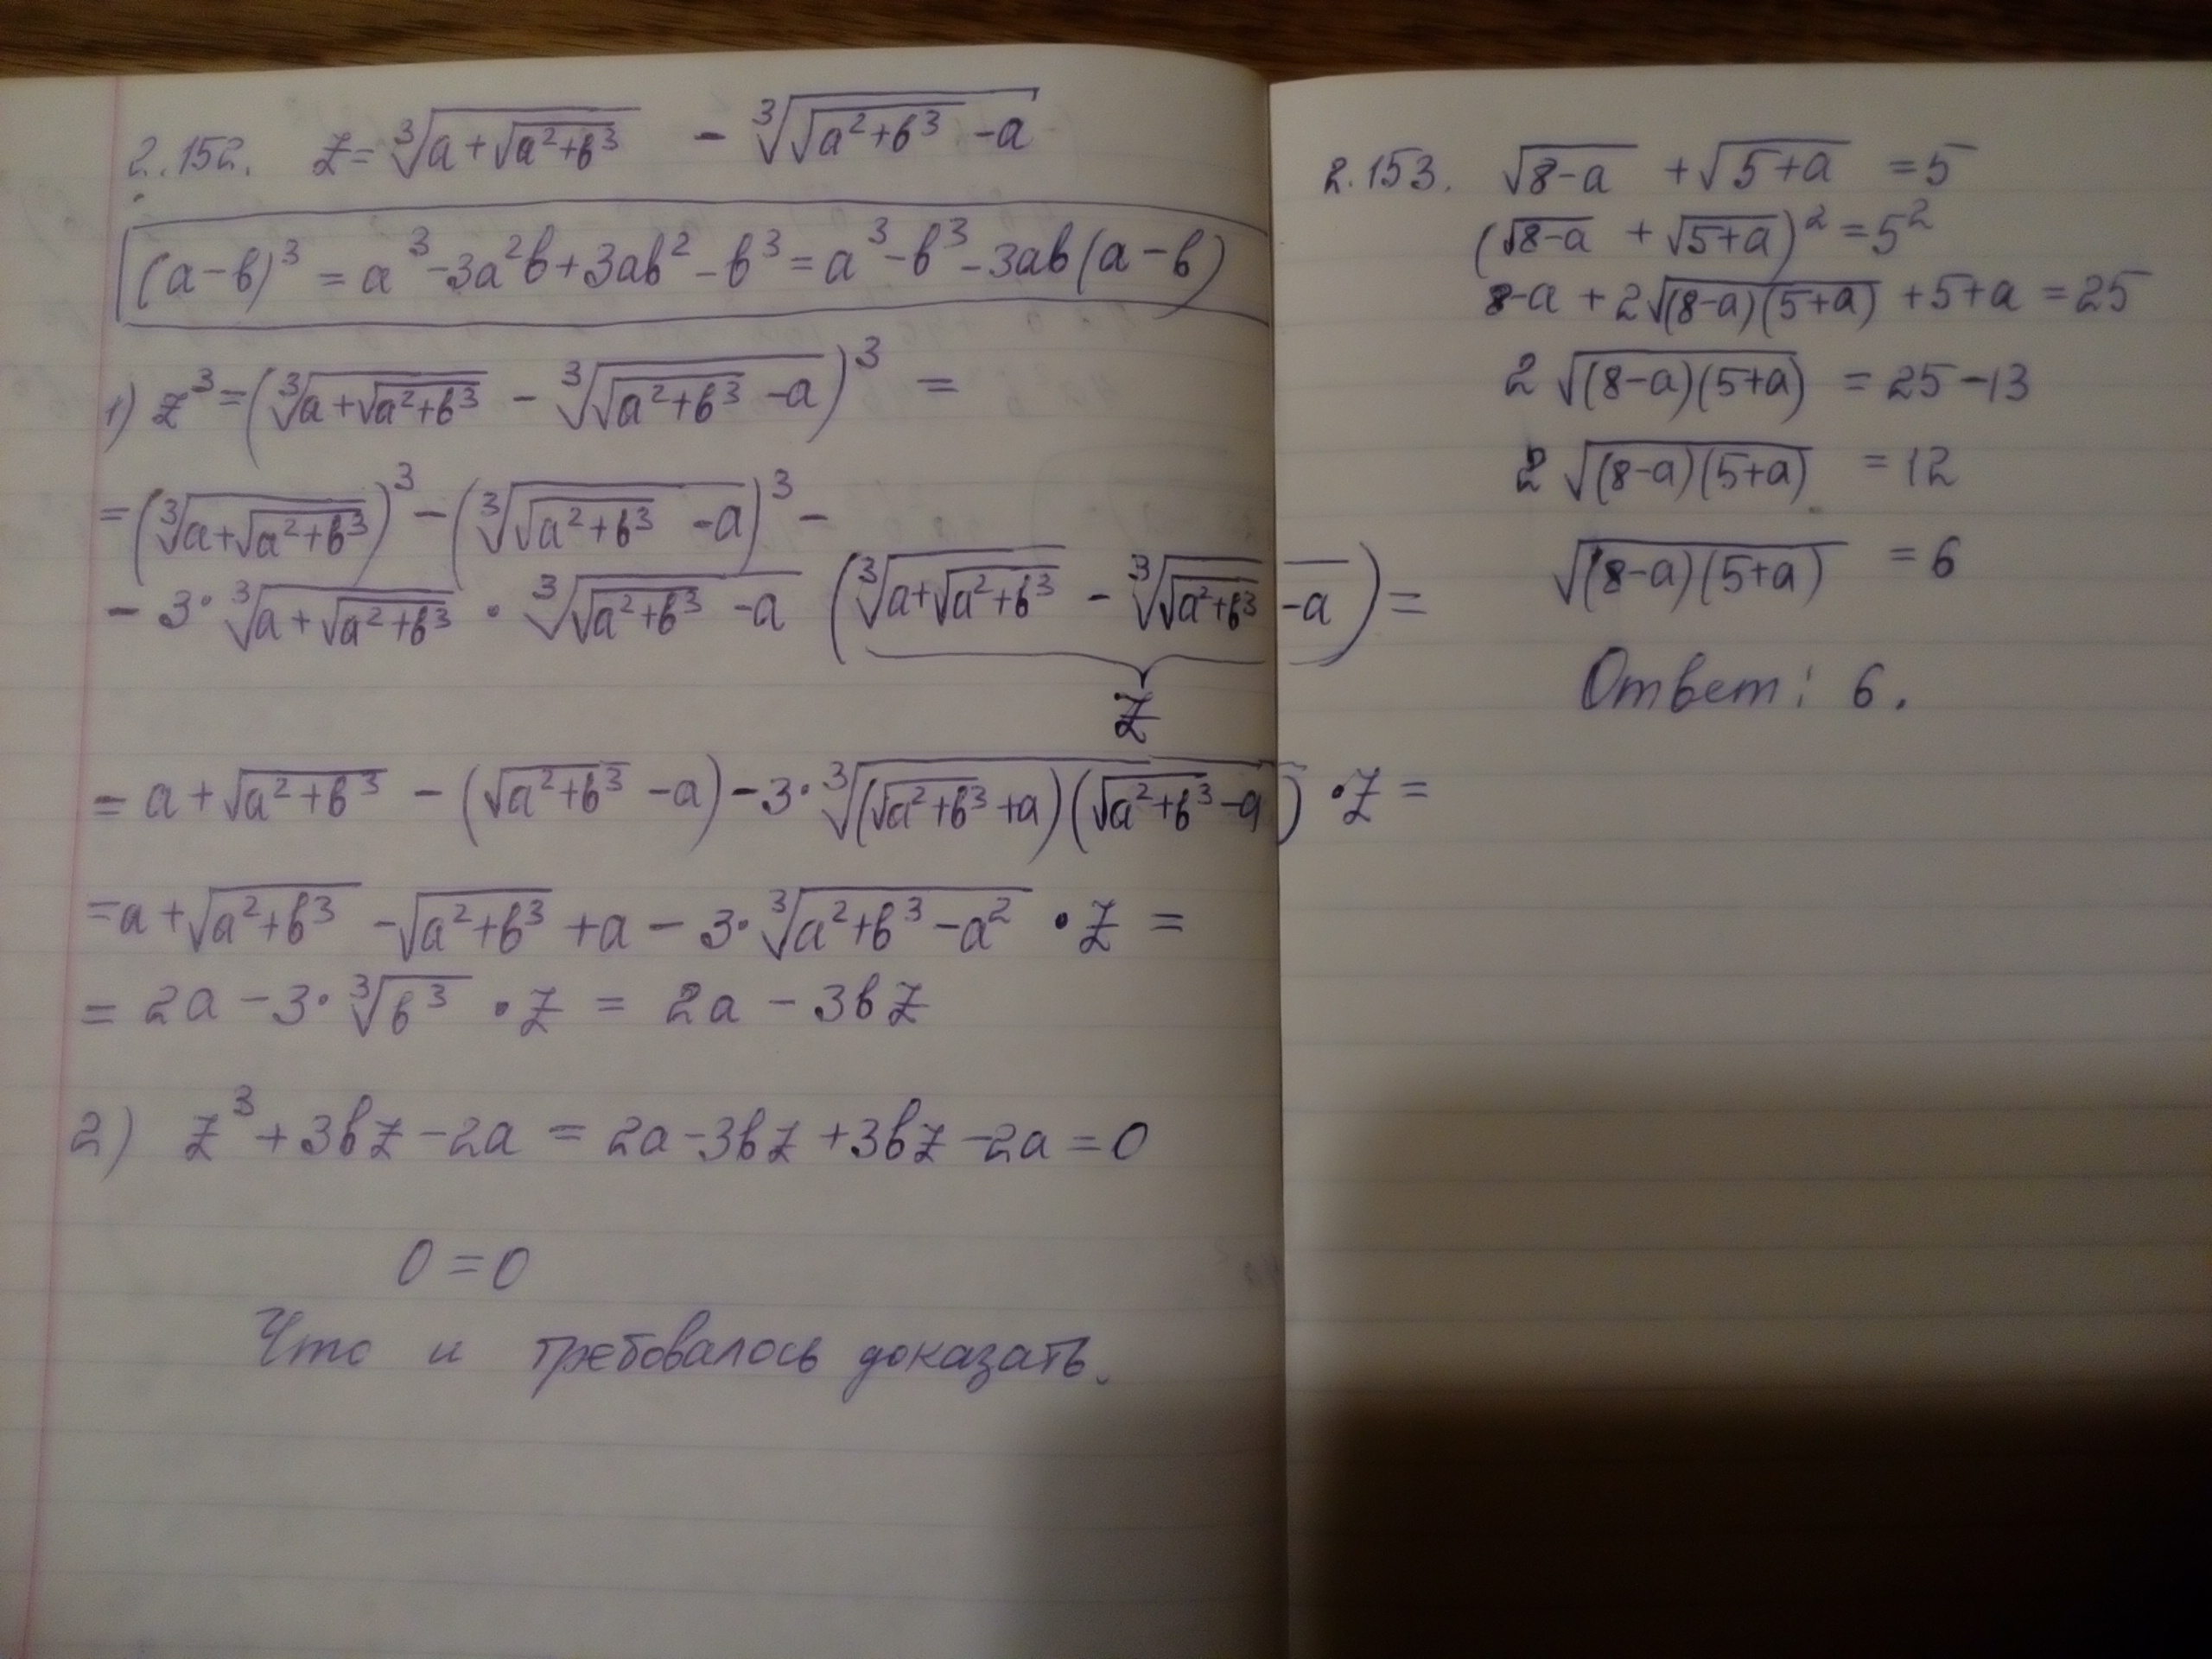 2.152. z = ∛(a+√(a²+b³)) − ∛(√(a²+b³) −a)
(a−b)³ = a³−3a²b+3ab²−b³ = a³−b³−3ab(a−b)
1) z³ = (∛(a+√(a²+b³)) − ∛(√(a²+b³) −a))³ =
= (∛(a+√(a²+b³)))³ − (∛(√(a²+b³) −a))³ −
− 3·∛(a+√(a²+b³)) · ∛(√(a²+b³) −a) (∛(a+√(a²+b³)) − ∛(√(a²+b³) −a)) =
z
= a+√(a²+b³) − (√(a²+b³) −a) −3·∛((√(a²+b³) +a)(√(a²+b³) −a)) ·z =
= a+√(a²+b³) −√(a²+b³) +a − 3·∛(a²+b³−a²) ·z =
= 2a − 3·∛(b³) ·z = 2a − 3bz
2) z³+3bz−2a = 2a−3bz+3bz−2a = 0
0=0
Что и требовалось доказать.
2.153. √(8−a) + √(5+a) = 5
(√(8−a) + √(5+a))² = 5²
8−a + 2√((8−a)(5+a)) + 5+a = 25
2√((8−a)(5+a)) = 25−13
2√((8−a)(5+a)) = 12
√((8−a)(5+a)) = 6
Ответ: 6.